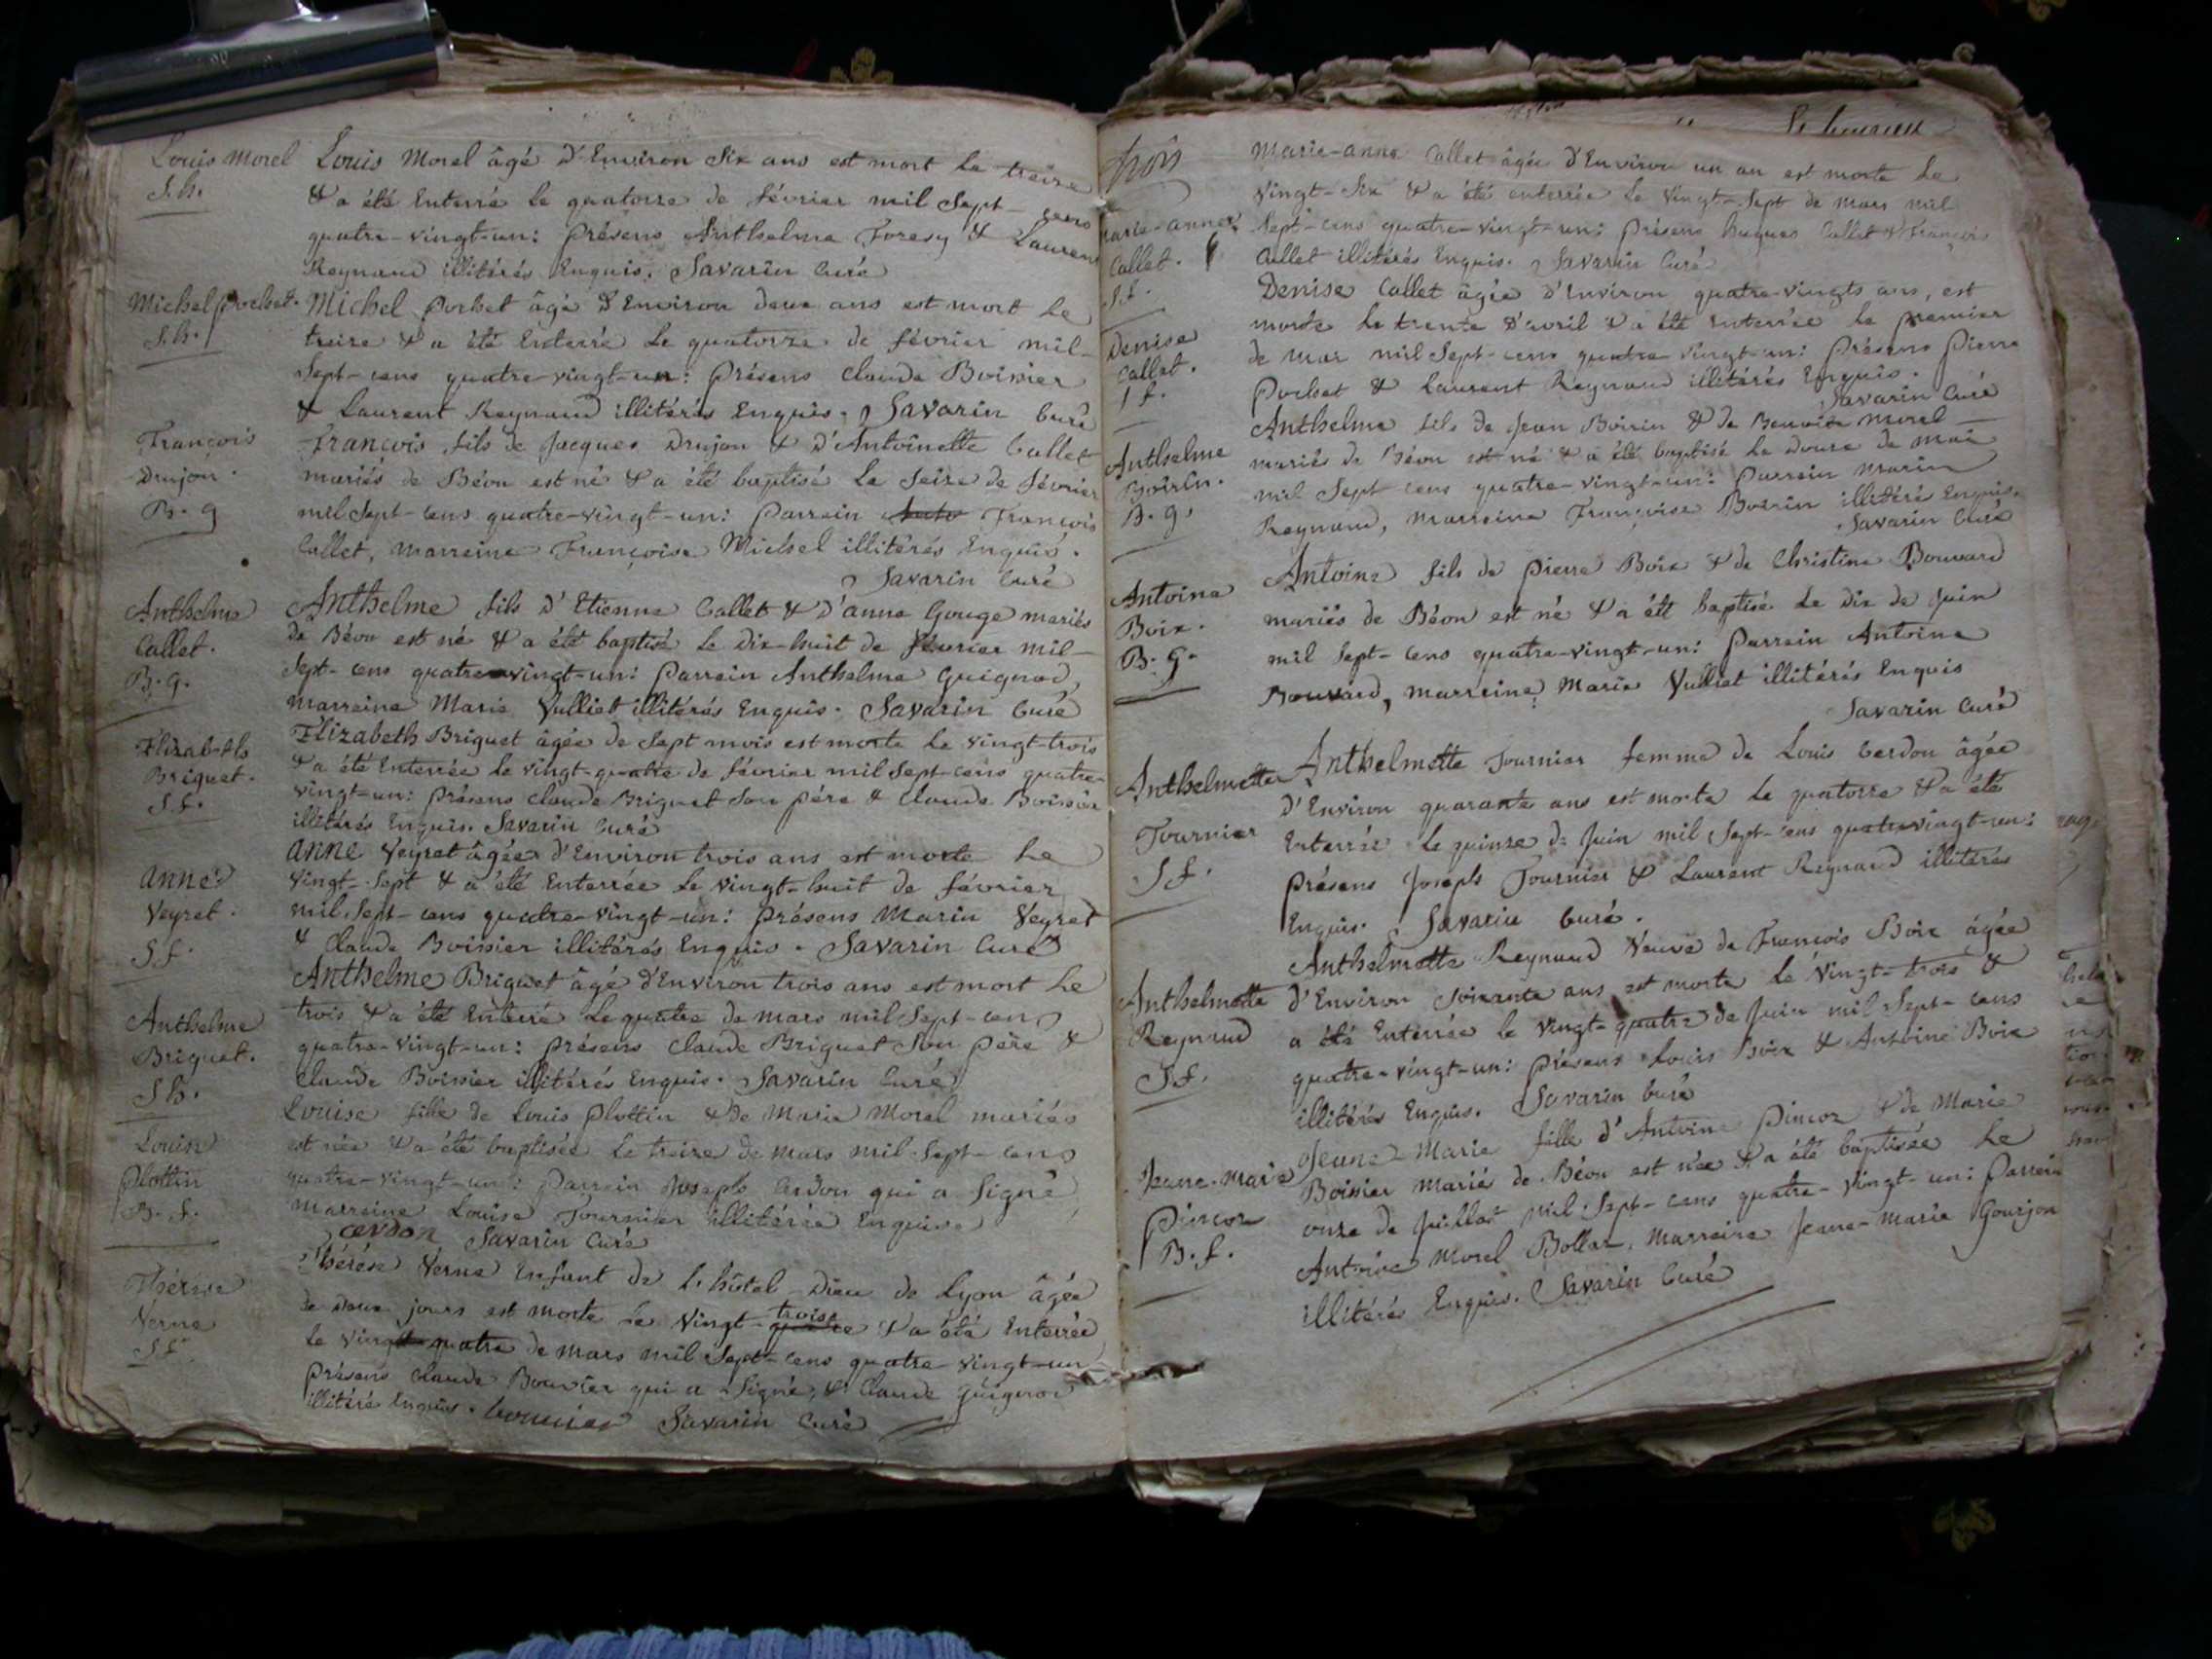 Louis Morel
S.h.
Louis Morel âgé d'Environ Six ans est mort le treize
& a été Enterré le quatorze de février mil Sept-cens
quatre-vingt-un: présens Anthelme Foresy & Laurent
Reynaud illitérés Enquis. Savarin Curé
Michel pochet.
S.h.
Michel pochet âgé d'Environ deux ans est mort le
treize & a été Enterré le quatorze de février mil-
Sept-cens quatre-vingt-un: présens Claude Boissier
& Laurent Reynaud illitérés Enquis. Savarin Curé
François
Drujon.
B. g
François fils de Jacques Drujon & d'Antoinette Callet
mariés de Béon est né & a été baptisé le seize de février
mil Sept-cens quatre-vingt-un: parrain François
Callet, marreine Françoise Michel illitérés Enquis.
Savarin Curé
Anthelme
Callet.
B. g.
Anthelme fils d'Etienne Callet & d'anne Gouge mariés
de Béon est né & a été baptisé le dix-huit de février mil-
Sept-cens quatre-vingt-un: parrain Anthelme Guignod,
marreine Marie Vulliet illitérés Enquis. Savarin Curé
Elizabeth
Briquet.
S.f.
Elizabeth Briquet âgée de Sept mois est morte le vingt-trois
& a été Enterrée le vingt-quatre de février mil Sept-cens quatre-
vingt-un: présens Claude Briquet Son père & Claude Boissier
illitérés Enquis. Savarin Curé
anne
Veyret.
S f.
anne Veyret âgée d'Environ trois ans est morte le
vingt-Sept & a été Enterrée le vingt-huit de février
mil Sept-cens quatre-vingt-un: présens Marin Veyret
& Claude Boissier illitérés Enquis. Savarin Curé
Anthelme
Briquet.
S h.
Anthelme Briquet âgé d'Environ trois ans est mort le
trois & a été Enterré le quatre de mars mil Sept-cens
quatre-vingt-un: présens Claude Briquet Son père &
Claude Boissier illitérés Enquis. Savarin Curé
Louise
plottin
B. f.
Louise fille de Louis plottin & de Marie Morel mariés
est née & a été baptisée le treize de mars mil Sept-cens
quatre-vingt-un: parrain Joseph Cerdon qui a Signé,
marreine Louise Fournier illitérée Enquise
cerdon Savarin Curé
Thérèse
Verne
S f.
Thérèse Verne Enfant de l'hôtel-Dieu de Lyon âgée
de deux jours est morte le vingt-trois & a été Enterrée
le vingt-quatre de mars mil Sept-cens quatre-vingt-un
présens Claude Bouvier qui a Signé, & Claude Guignod
illitéré Enquis. bouvier Savarin Curé
trois
marie-anne
Callet.
S f.
Marie-anne Callet âgée d'Environ un an est morte le
vingt-Six & a été enterrée le vingt-Sept de mars mil
Sept-cens quatre-vingt-un: présens hugues Callet & françois
Callet illitérés Enquis. Savarin Curé
Denise
Callet.
S f.
Denise Callet âgée d'Environ quatre-vingts ans, est
morte le trente d'avril & a été Enterrée le premier
de mai mil Sept-cens quatre-vingt-un: présens Pierre
pochet & Laurent Reynaud illitérés Enquis.
Savarin Curé
Anthelme
Boirin.
B. g.
Anthelme fils de Jean Boirin & de Benoite Morel
mariés de Béon est né & a été baptisé le douze de mai
mil Sept cens quatre-vingt-un: parrain Marin
Reynaud, marreine Françoise Boirin illitérés Enquis.
Savarin Curé
Antoine
Boix.
B. g.
Antoine fils de pierre Boix & de Christine Bouvard
mariés de Béon est né & a été baptisé le dix de juin
mil Sept-cens quatre-vingt-un: parrain Antoine
Bouvard, marreine Marie Vulliet illitérés Enquis
Savarin Curé
Anthelmette
Fournier
S f.
Anthelmette Fournier femme de Louis Cerdon âgée
d'Environ quarante ans est morte le quatorze & a été
Enterrée le quinze de Juin mil Sept-cens quatre-vingt-un:
présens Joseph Fournier & Laurent Reynaud illitérés
Enquis. Savarin Curé.
Anthelmette
Reynaud
S f.
Anthelmette Reynaud Veuve de François Boix âgée
d'Environ Soixante ans est morte le vingt-trois &
a été Enterrée le vingt-quatre de Juin mil Sept-cens
quatre-vingt-un: présens Louis Boix & Antoine Boix
illitérés Enquis. Savarin Curé
Jeane-Marie
Pincoz
B. f.
Jeane-Marie fille d'Antoine Pincoz & de Marie
Boissier mariés de Béon est née & a été baptisée le
onze de juillet mil Sept-cens quatre-vingt-un: parrein
Antoine Morel Bollar, Marreine Jeane-Marie Gourjon
illitérés Enquis. Savarin Curé